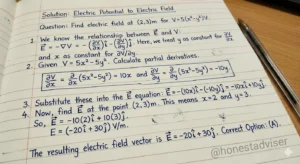 Solution: Electric Potential to Electric Field
Question: Find electric field at (2,3)m for V=5(x²-y²)V.
1. We know the relationship between E⃗ and V:
E⃗ = -∇V = -(∂V/∂x)î - (∂V/∂y)ĵ. Here, we treat y as constant for ∂V/∂x
and x as constant for ∂V/∂y.
2. Given V = 5x² - 5y². Calculate partial derivatives.
∂V/∂x = ∂/∂x (5x²-5y²) = 10x and ∂V/∂y = ∂/∂y (5x²-5y²) = -10y
3. Substitute these into the E⃗ equation: E⃗ = -(10x)î - (-10y)ĵ = -10xî + 10yĵ
4. Now, find E⃗ at the point (2,3)m. This means x=2 and y=3.
So, E⃗ = -10(2)î + 10(3)ĵ.
E⃗ = (-20î + 30ĵ) V/m.
The resulting electric field vector is E⃗ = -20î + 30ĵ. Correct Option: (A).
@honestadviser